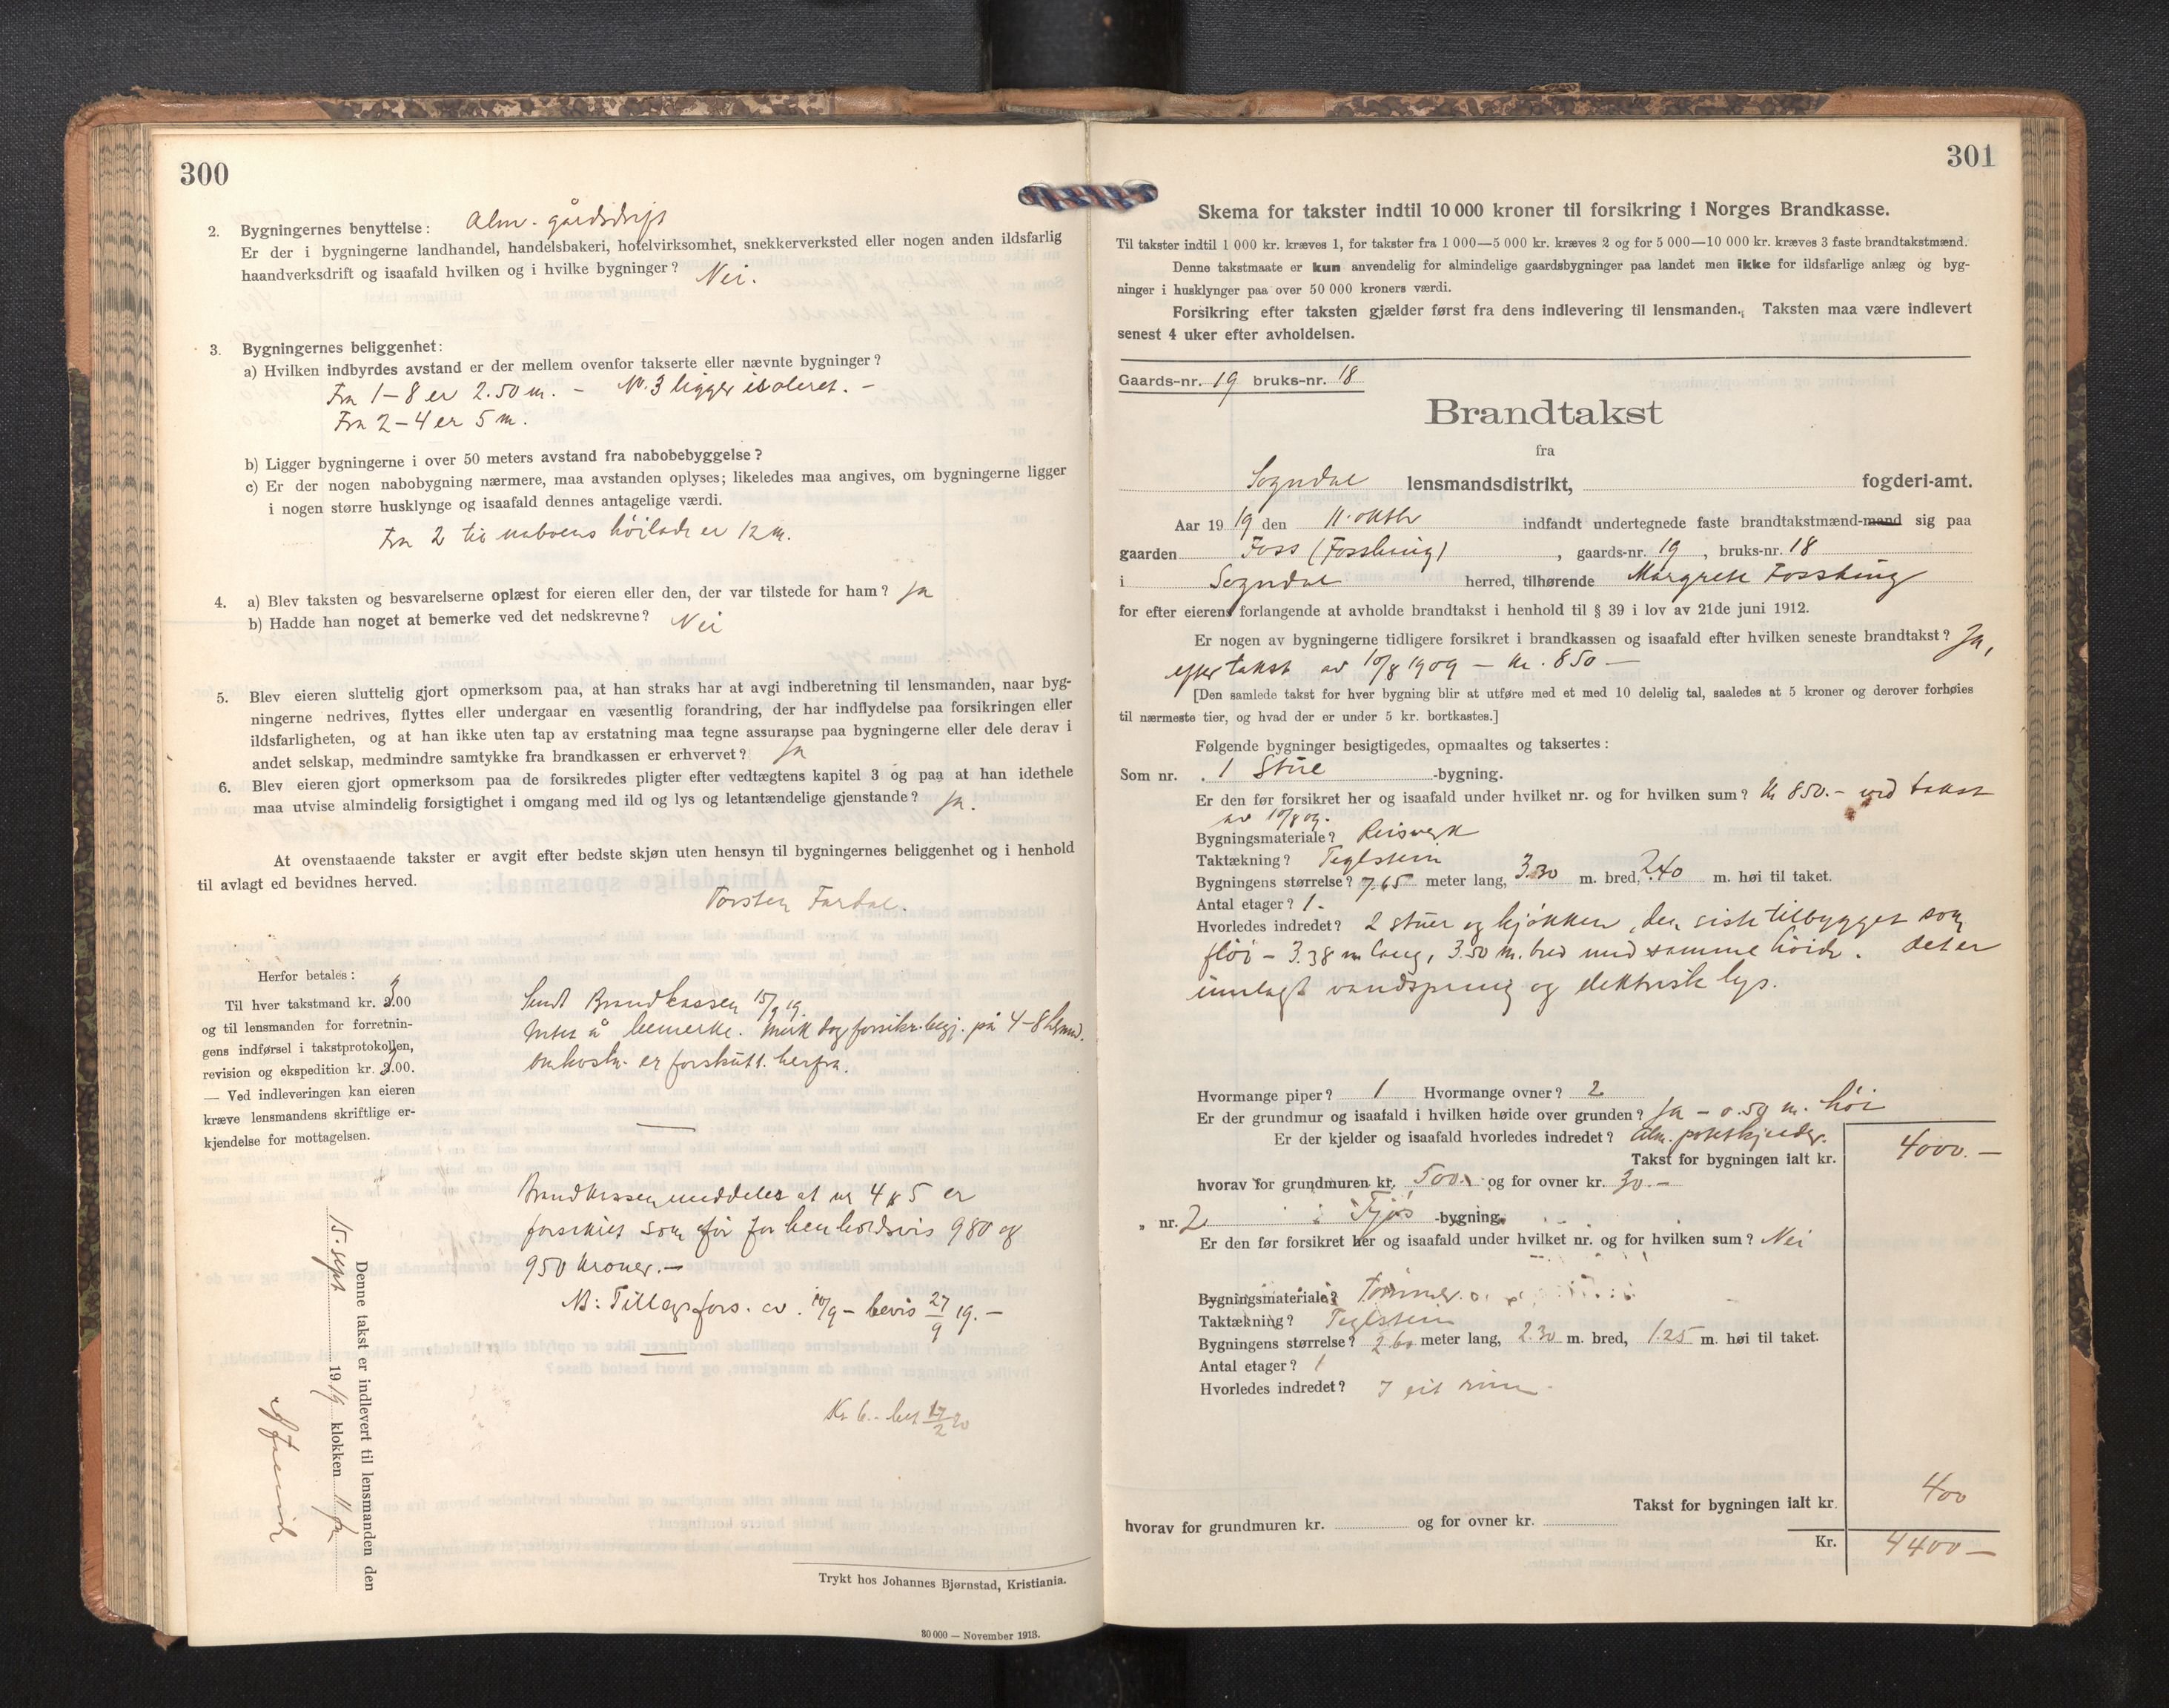 300
2. Bygningernes benyttelse: Alm. gårdsdrift
Er der i bygningerne landhandel, handelsbakeri, hotelvirksomhet, snekkerverksted eller nogen anden ildsfarlig
haandverksdrift og isaafald hvilken og i hvilke bygninger? Nei.
3. Bygningernes beliggenhet:
a) Hvilken indbyrdes avstand er der mellem ovenfor takserte eller nævnte bygninger?
Fra 1-8 er 2.50 m. - Nr. 3 ligger isoleret. -
Fra 2-4 er 5 m.
b) Ligger bygningerne i over 50 meters avstand fra nabobebyggelse?
c) Er der nogen nabobygning nærmere, maa avstanden oplyses; likeledes maa angives, om bygningerne ligger
i nogen større husklynge og isaafald dennes antagelige værdi.
Fra 2 til naboens höilade er 12 m.
4. a) Blev taksten og besvarelserne oplæst for eieren eller den, der var tilstede for ham? Ja
b) Hadde han noget at bemerke ved det nedskrevne? Nei
5. Blev eieren sluttelig gjort opmerksom paa, at han straks har at avgi indberetning til lensmanden, naar byg-
ningerne nedrives, flyttes eller undergaar en væsentlig forandring, der har indflydelse paa forsikringen eller
ildsfarligheten, og at han ikke uten tap av erstatning maa tegne assuranse paa bygningerne eller dele derav i
andet selskap, medmindre samtykke fra brandkassen er erhvervet? Ja
6. Blev eieren gjort opmerksom paa de forsikredes pligter efter vedtægtens kapitel 3 og paa at han idethele
maa utvise almindelig forsigtighet i omgang med ild og lys og letantændelige gjenstande? Ja.
At ovenstaaende takster er avgit efter bedste skjøn uten hensyn til bygningernes beliggenhet og i henhold
til avlagt ed bevidnes herved.
Torstein Fardal.
Herfor betales:
Til hver takstmand kr. 3.00
og til lensmanden for forretnin-
gens indførsel i takstprotokollen,
revision og ekspedition kr. 3.00.
— Ved indleveringen kan eieren
kræve lensmandens skriftlige er-
kjendelse for mottagelsen.
Sendt Brandkassen 15/9 19.
Intet å bemerke. Merk dog forsikr.begj. på 4-8
omkostn. er forskutt. herfra.
Brandkassen meddeler at nr 4 & 5 er
forsikret som før for henholdsvis 980 og
950 kroner.-
NB: Tillægsfors. av 10/9 - bevis 27/9 19.-
Kr 6.- bet 17/2 20
Denne takst er indlevert til lensmanden den
15. sept 1919 klokken 11 fm
Trykt hos Johannes Bjørnstad, Kristiania.
30 000 — November 1918.
301
Skema for takster indtil 10 000 kroner til forsikring i Norges Brandkasse.
Til takster indtil 1 000 kr. kræves 1, for takster fra 1 000—5 000 kr. kræves 2 og for 5 000—10 000 kr. kræves 3 faste brandtakstmænd.
Denne takstmaate er kun anvendelig for almindelige gaardsbygninger paa landet men ikke for ildsfarlige anlæg og byg-
ninger i husklynger paa over 50 000 kroners værdi.
Forsikring efter taksten gjælder først fra dens indlevering til lensmanden. Taksten maa være indlevert
senest 4 uker efter avholdelsen.
Gaards-nr. 19 bruks-nr. 18
Brandtakst
fra
Sogndal lensmandsdistrikt, fogderi-amt.
Aar 1919 den 11. oktbr indfandt undertegnede faste brandtakstmænd-mand sig paa
gaarden Foss (Fosshaug), gaards-nr. 19, bruks-nr. 18
i Sogndal herred, tilhørende Margrete Fosshaug
for efter eierens forlangende at avholde brandtakst i henhold til § 39 i lov av 21de juni 1912.
Er nogen av bygningerne tidligere forsikret i brandkassen og isaafald efter hvilken seneste brandtakst? Ja,
efter takst av 10/8 1909 - kr. 850 -
[Den samlede takst for hver bygning blir at utføre med et med 10 delelig tal, saaledes at 5 kroner og derover forhøies
til nærmeste tier, og hvad der er under 5 kr. bortkastes.]
Følgende bygninger besigtigedes, opmaaltes og taksertes:
Som nr. 1 Stue -bygning.
Er den før forsikret her og isaafald under hvilket nr. og for hvilken sum? Kr 850.- ved takst
av 10/8 09.
Bygningsmateriale? Reisverk
Taktækning? Teglstein
Bygningens størrelse? 7.65 meter lang, 3.30 m. bred, 2.40 m. høi til taket.
Antal etager? 1.
Hvorledes indredet? 2 stuer og kjøkken, den siste tilbygget som
fløi - 3.38 m lang, 3.50 m. bred med samme høide. Det er
innlagt vandspring og elektrisk lys.
Hvormange piper? 1 Hvormange ovner? 2
Er der grundmur og isaafald i hvilken høide over grunden? Ja - 0.50 m. høi
Er der kjelder og isaafald hvorledes indredet? Alm. potetkjelder.
Takst for bygningen ialt kr. 4000.-
hvorav for grundmuren kr. 500.- og for ovner kr. 30.-
„ nr. 2 Fjøs -bygning.
Er den før forsikret her og isaafald under hvilket nr. og for hvilken sum? Nei
Bygningsmateriale? Tømmer
Taktækning? Teglstein
Bygningens størrelse? 2.60 meter lang, 2.30 m. bred, 1.25 m. høi til taket.
Antal etager? 1
Hvorledes indredet? I eit rum.
Takst for bygningen ialt kr. 400
hvorav for grundmuren kr. og for ovner kr.
Kr. 4400-